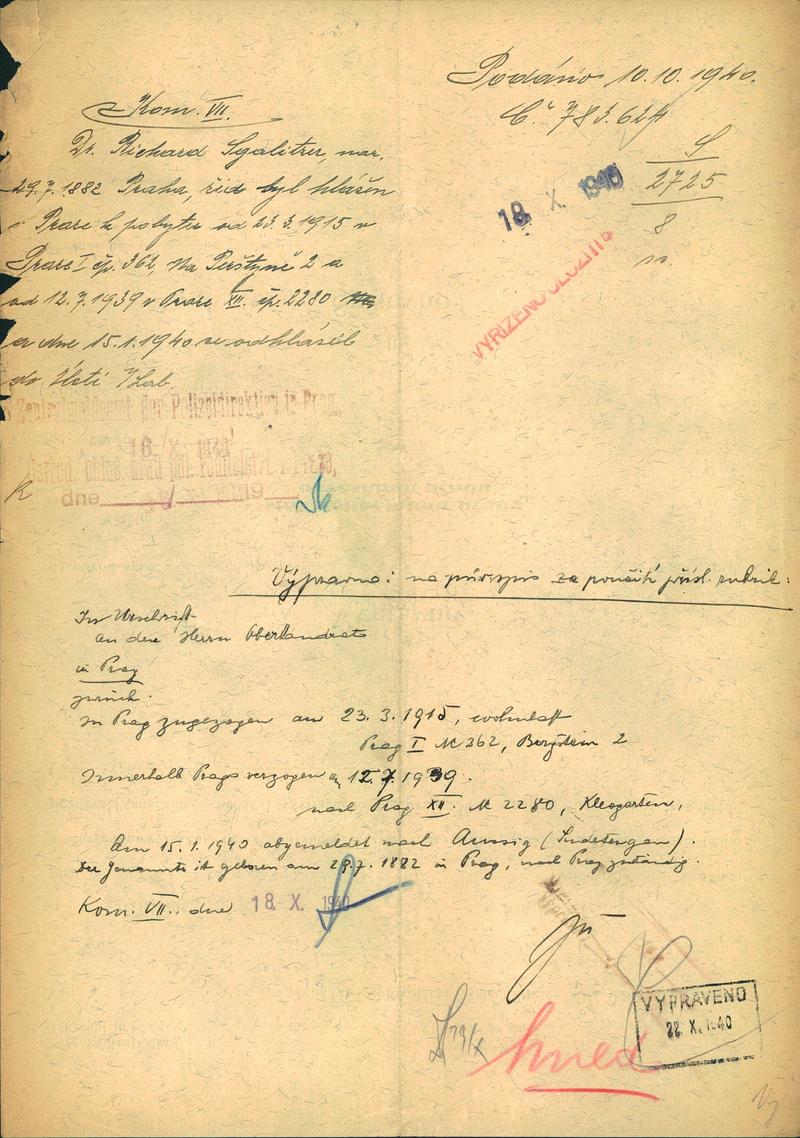 Podáno 10.10.1940.
Č. 783.624
S
2725
8
18. X. 1940
VYŘÍZENO ULOŽITI
Kom. VII.
Dr. Richard Sgalitzer, nar.
29.7.1882 Praha, řád. byl hlášen
v Praze k pobytu od 23.3.1915 v
Praze I čp. 362, Na Perštýně 2 a
od 12.7.1939 v Praze XII. čp. 2280
a dne 15.1.1940 se odhlásil
do Ústí n/Lab.
Zentralmeldeamt der Polizeidirektion in Prag,
16. X. 1940
ústřed. ohlaš. úřad pol. ředitelství v Praze,
dne 19
Výpravna: na průpis za použití přísl. rubrik:
In Urschrift
an den Herrn Oberlandrat
in Prag
zurück.
In Prag zugezogen am 23.3.1915, wohnhaft
Prag I N 362, Bergstein 2
Innerhalb Prags verzogen am 12.7.1939.
nach Prag XII. N 2280, Kleogarten,
Am 15.1.1940 abgemeldet nach Aussig (Sudetengau).
Der Genannte ist geboren am 29.7.1882 in Prag, nach Prag zuständig.
Kom. VII. dne 18. X. 1940
VYPRAVENO
22. X. 1940
hned